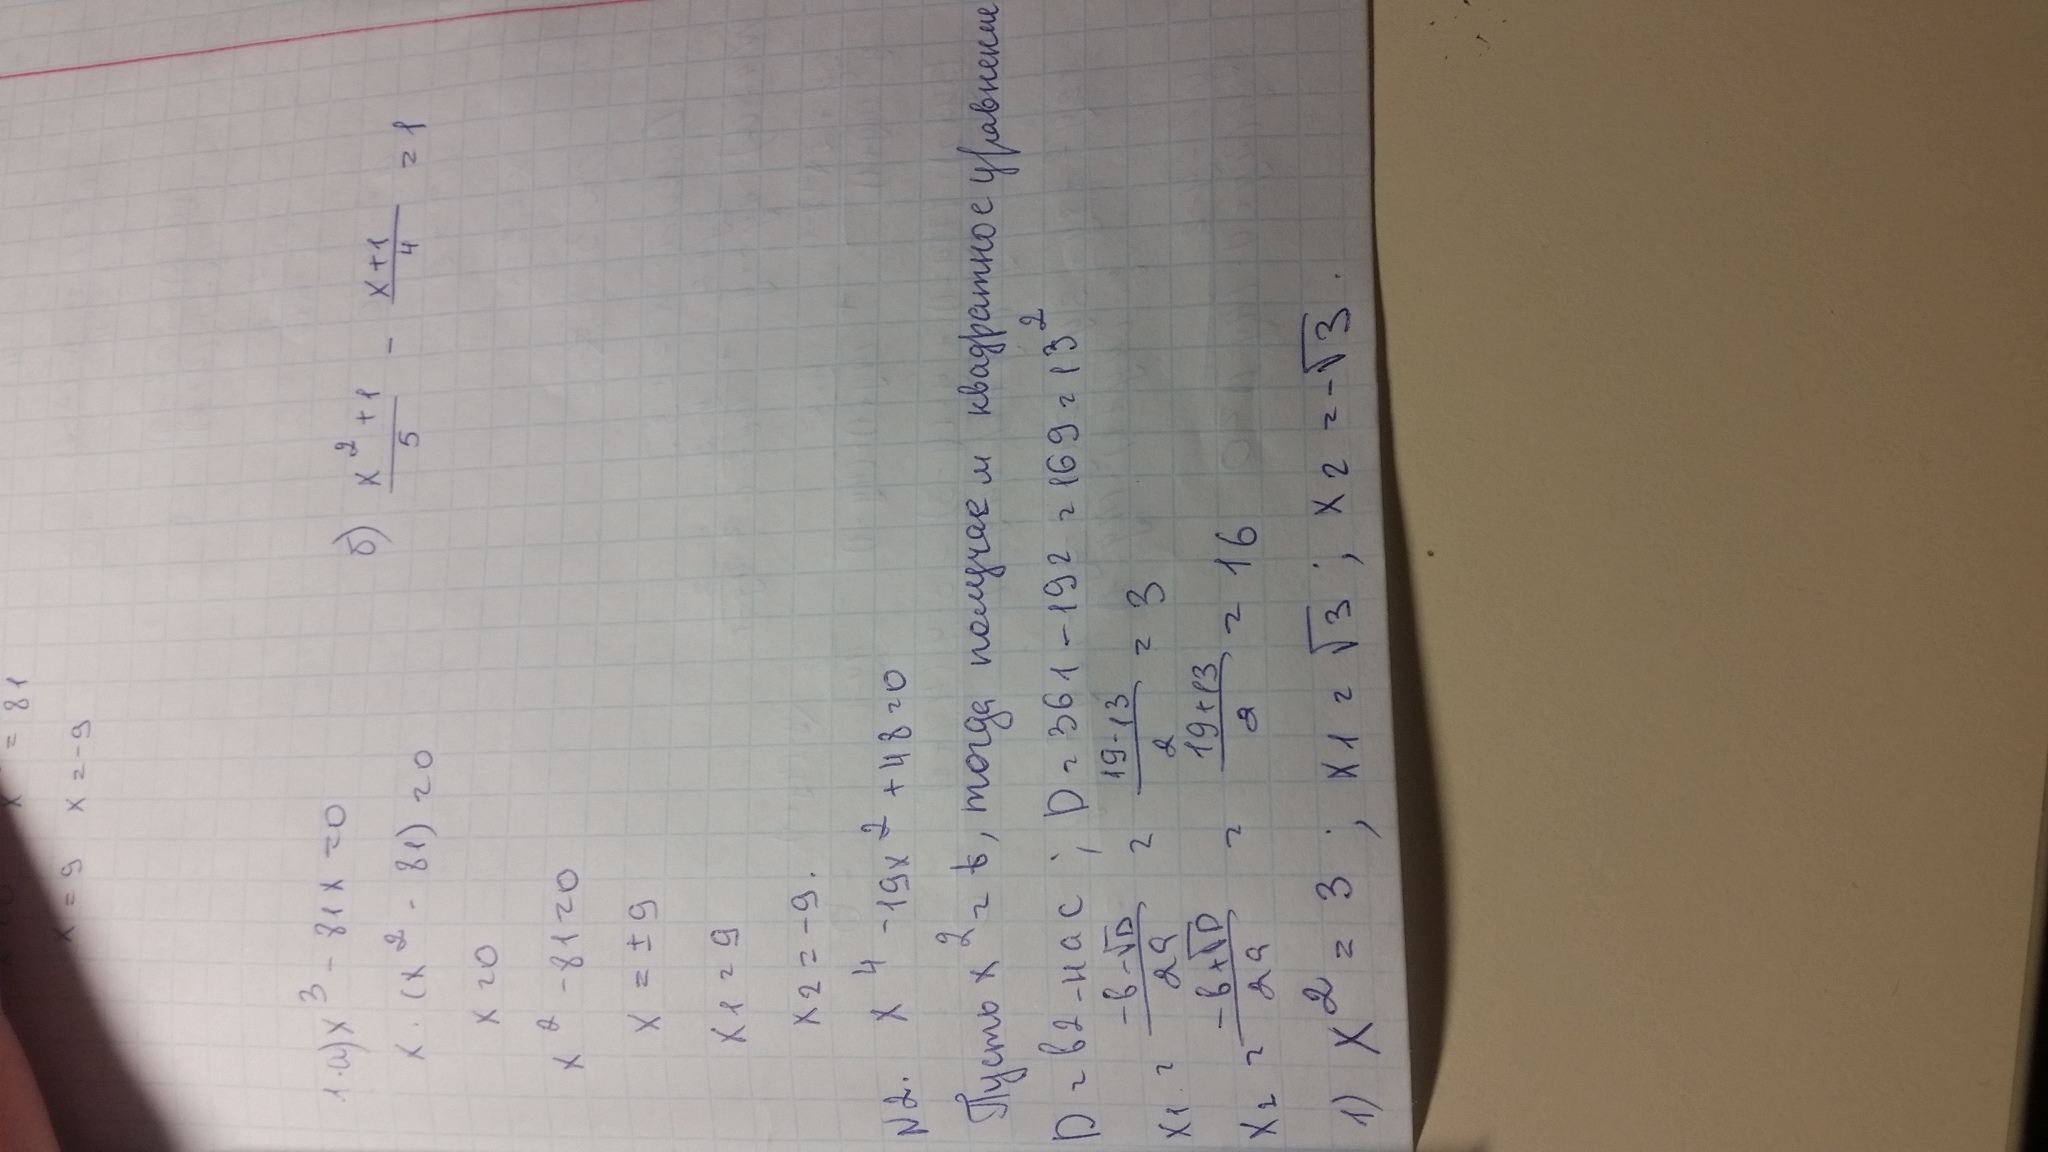 = 81
x = 9 x = -9
1.а) x³ - 81x = 0
x · (x² - 81) = 0
x = 0
x² - 81 = 0
x = ± 9
x1 = 9
x2 = -9.
б) \frac{x² + 1}{5} - \frac{x + 1}{4} = 1
N2. x⁴ - 19x² + 48 = 0
Пусть x² = t, тогда получаем квадратное уравнение
D = b2 - 4ac ; D = 361 - 192 = 169 = 13²
x1 = \frac{-b - √D}{2a} = \frac{19 - 13}{2} = 3
x2 = \frac{-b + √D}{2a} = \frac{19 + 13}{2} = 16
1) x² = 3 ; x1 = √3 ; x2 = -√3.